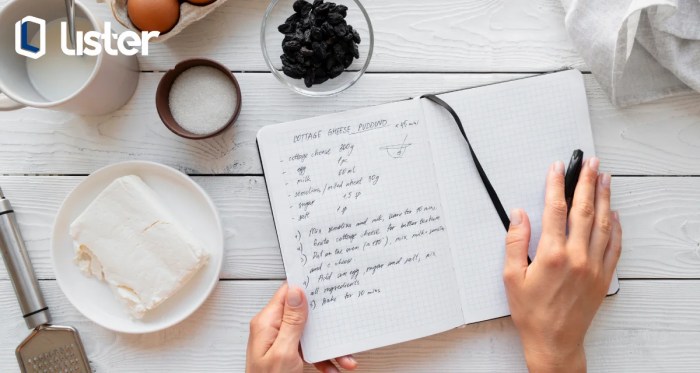 Lister
COTTAGE CHEESE PUDDING
- cottage cheese 300g
- egg 1 p.
- milk 50 ml
- semolina / rolled wheat 30g
- sugar
- salt 1 p
1) Mix semolina and milk, leave for 10 min.
2) cottage cheese for better texture
3) Put on the oven mix milk-semo
and c. cheese
4) Add egg sugar and salt, mix
all ingredients
5) Bake for 30 mins